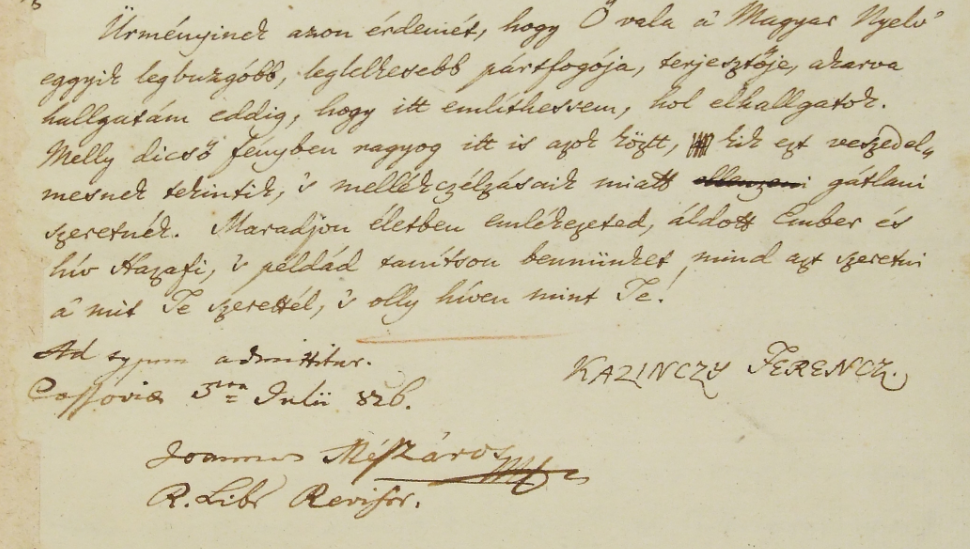 Ürményinek azon érdemét, hogy Ő vala a' Magyar Nyelv'
eggyik legbuzgóbb, leglelkesebb pártfogója, terjesztője, akarva
hallgatám eddig, hogy itt említhessem, hol elhallgatok.
Melly dicső fényben ragyog itt is azok között, kik ezt veszedel,,
mesnek tekintik, 's mellékczélzásaik miatt ellenzeni gátlani
szeretnék. Maradjon életben emlékezeted, áldott Ember és
hív Hazafi, 's példád tanítson bennünket, mind azt szeretni
a' mit Te szerettél, 's olly híven mint Te!
Ad typum admittitur.
KAZINCZY FERENCZ.
Cassoviae 3tia Julii 826.
Joannes Mészáros
R. Libr Revisor.